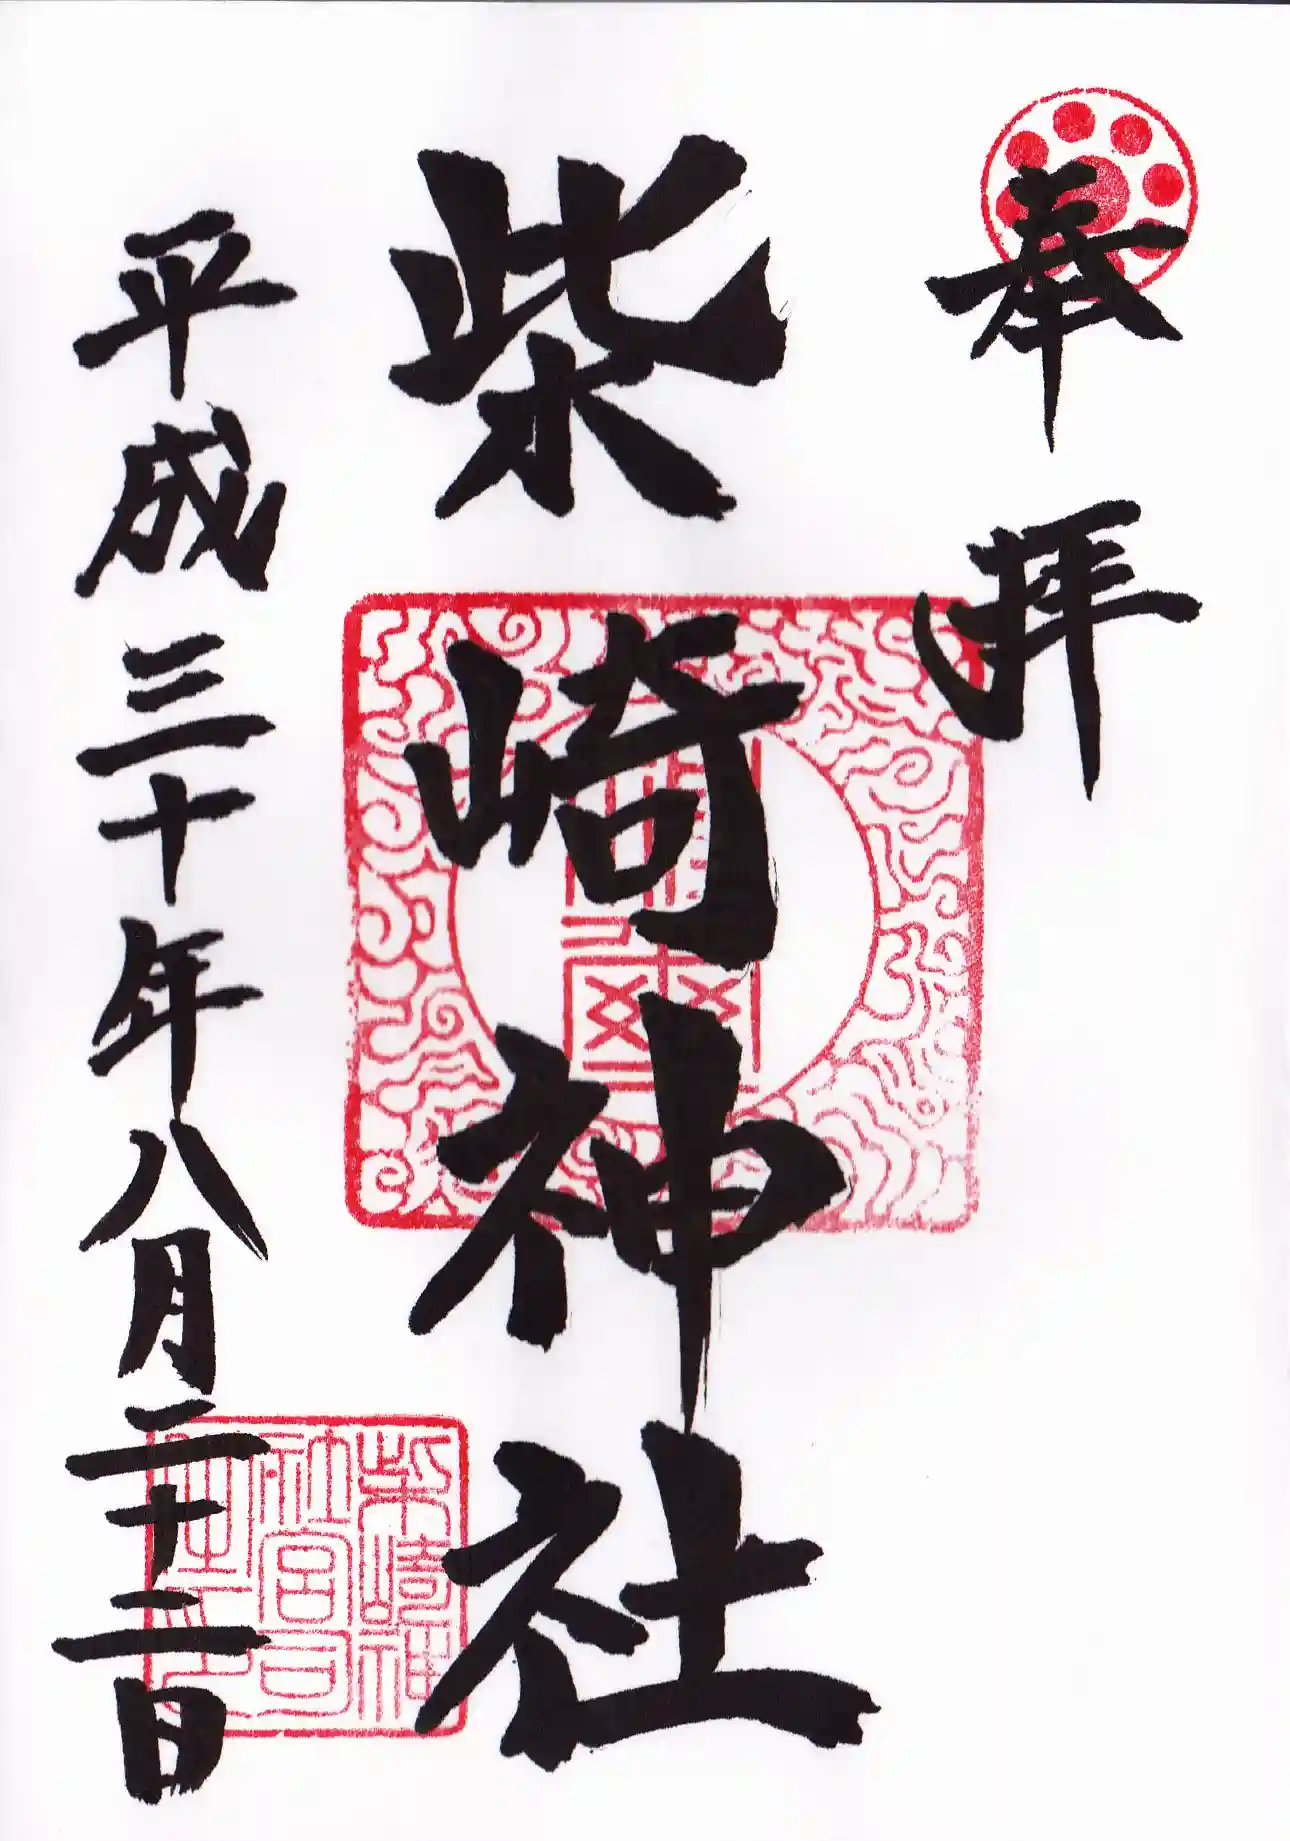 奉拝
柴崎神社
平成三十年八月二十二日
柴崎神社宮司之印